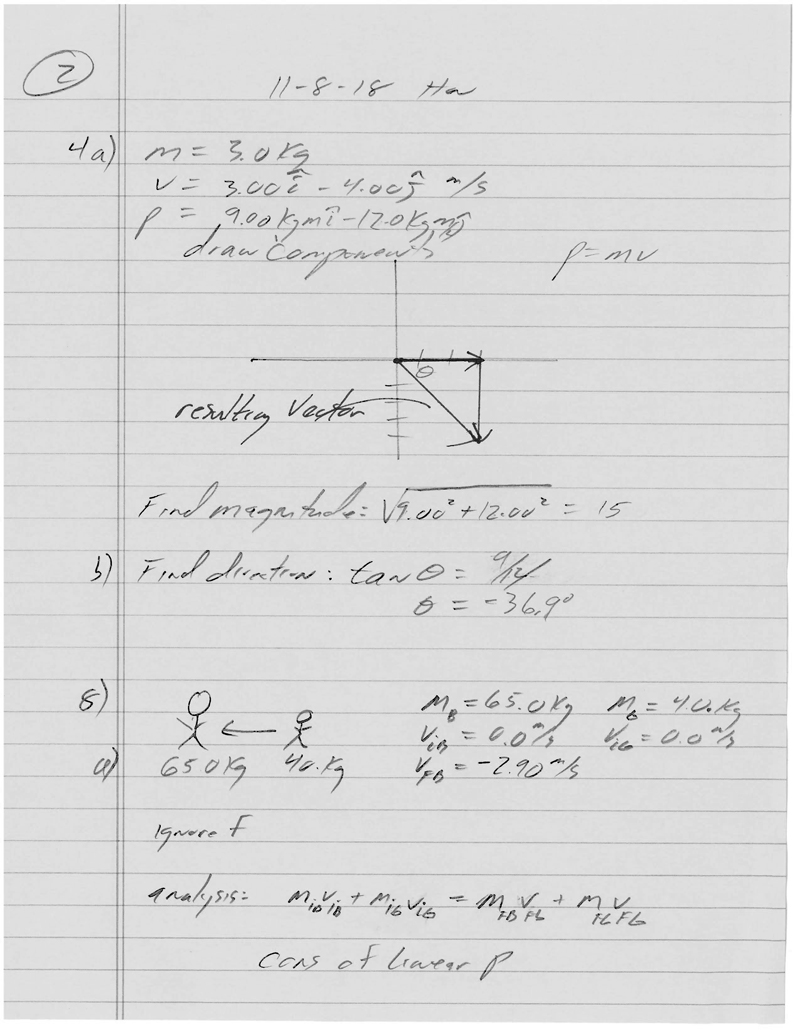 2
11-8-18 Hw
4a) m = 3.0 Kg
v = 3.00î - 4.00ĵ m/s
p = 9.00 Kgmî - 12.0 Kgmĵ
draw Components
p = mv
θ
resulting Vector
Find magnitude: √9.00² + 12.00² = 15
b) Find direction: tan θ = 9/12
θ = -36.9°
8) m_B = 65.0 Kg m_G = 40. Kg
v_iB = 0.0 m/s v_iG = 0.0 m/s
a) 65.0 Kg 40. Kg v_FB = -2.90 m/s
ignore F
analysis: m_iB v_iB + m_iG v_iG = m_FB v_FB + m_FG v_FG
cons of linear p